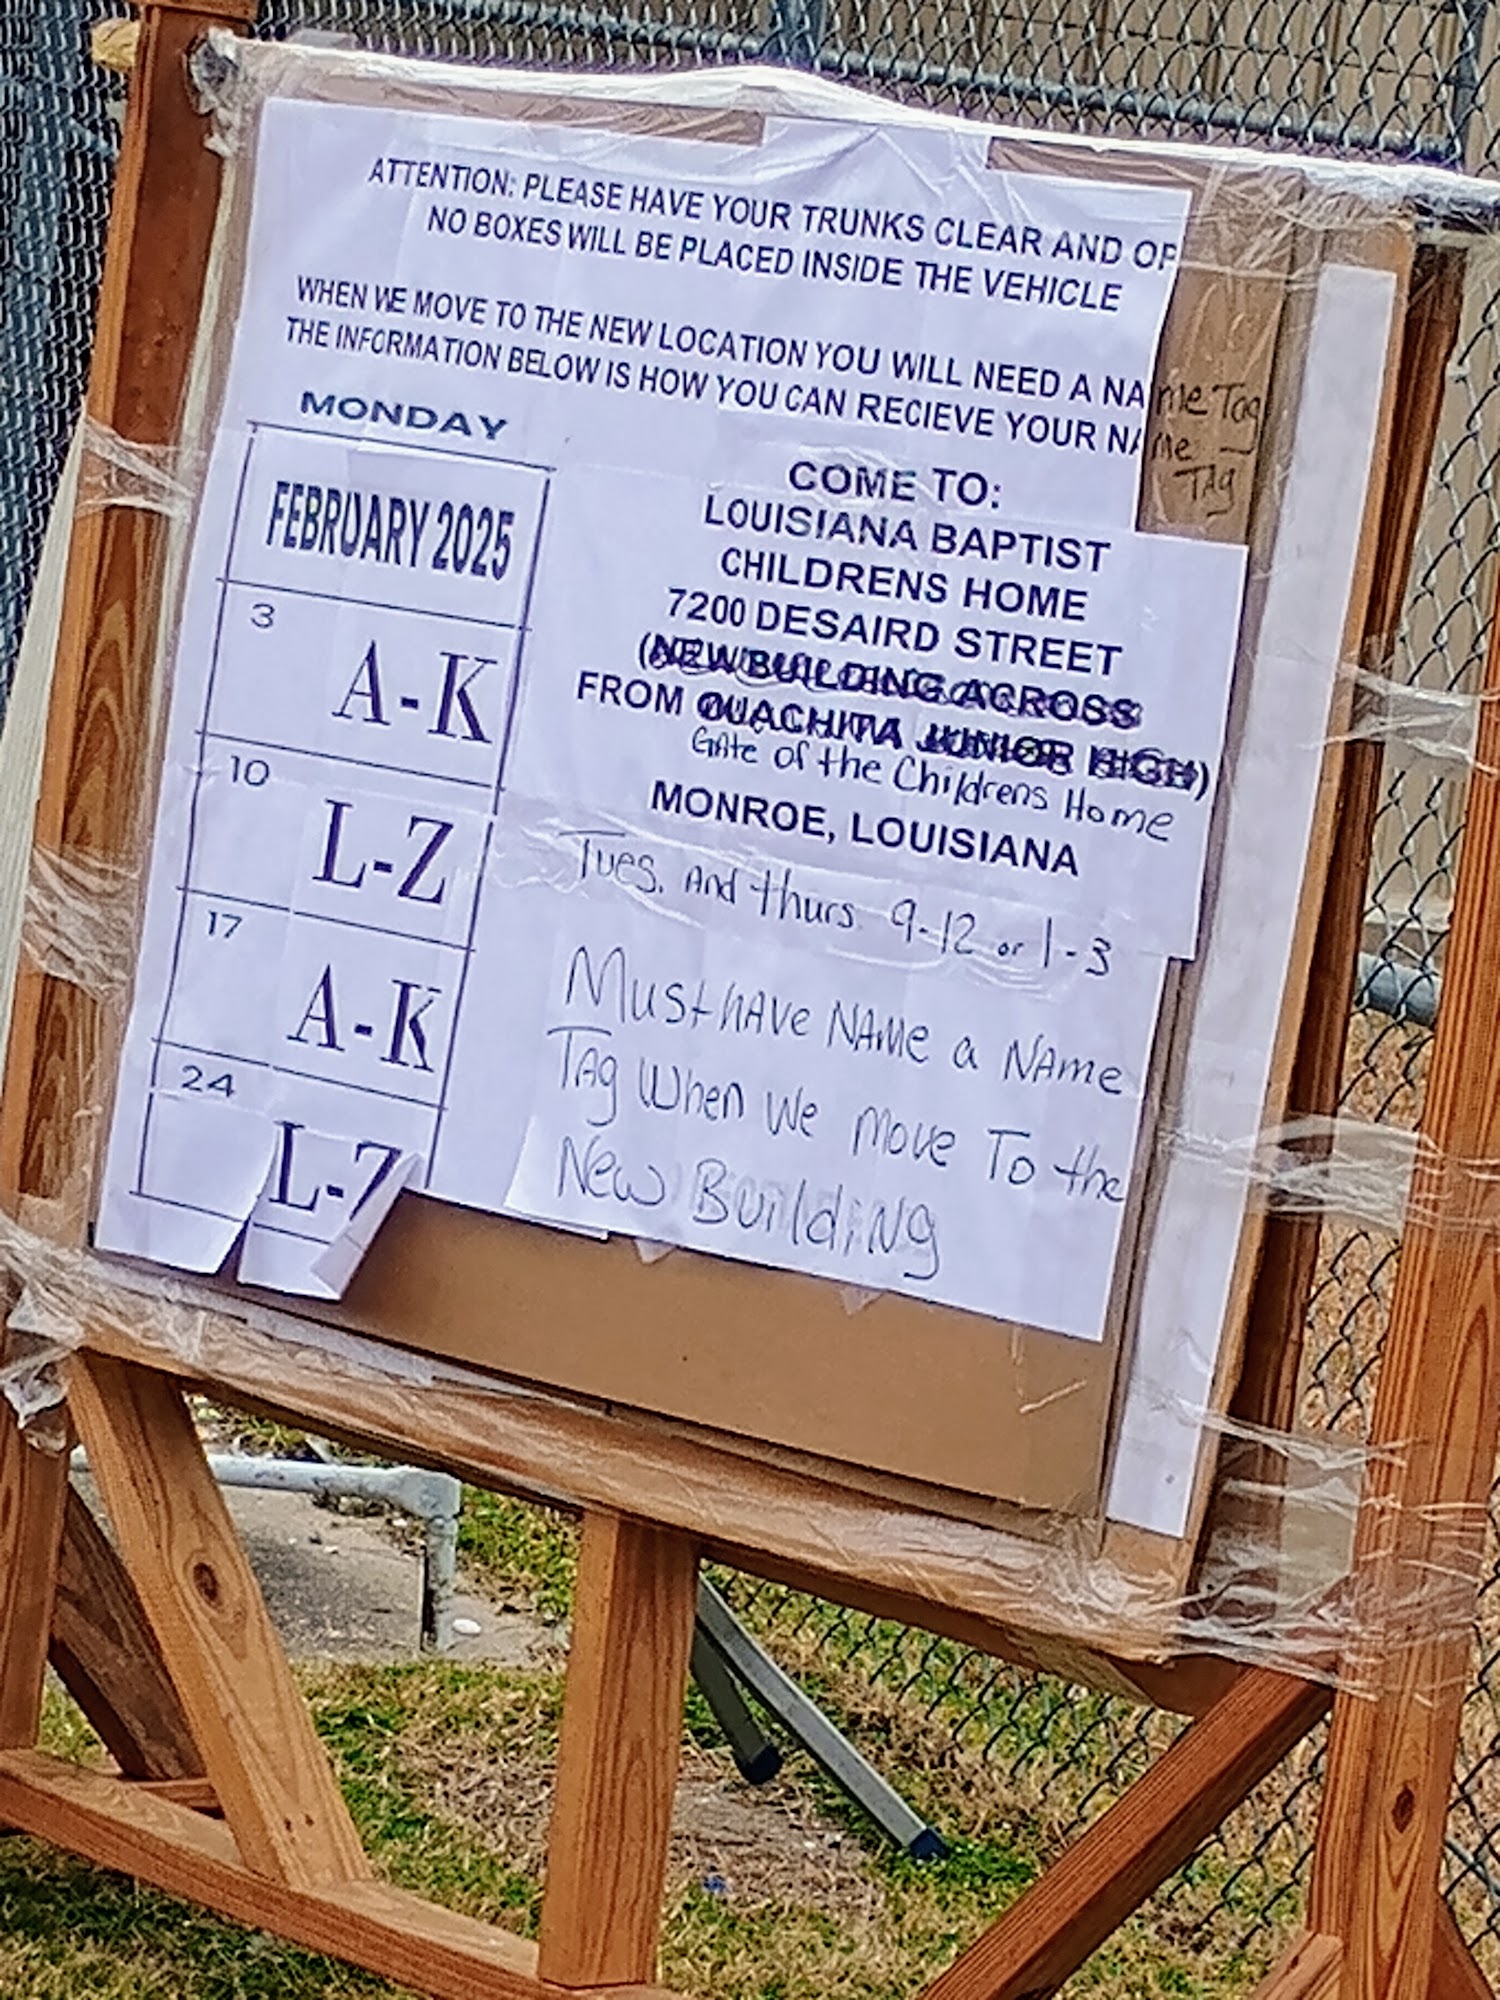 ATTENTION: PLEASE HAVE YOUR TRUNKS CLEAR AND OP
NO BOXES WILL BE PLACED INSIDE THE VEHICLE
WHEN WE MOVE TO THE NEW LOCATION YOU WILL NEED A NAme Tag
THE INFORMATION BELOW IS HOW YOU CAN RECIEVE YOUR NAme
TAg
MONDAY
FEBRUARY 2025
3
A-K
10
L-Z
17
A-K
24
L-Z
COME TO:
LOUISIANA BAPTIST
CHILDRENS HOME
7200 DESAIRD STREET
(NEW BUILDING ACROSS
FROM OUACHITA JUNIOR HIGH)
GAte of the Childrens Home
MONROE, LOUISIANA
Tues. And thurs. 9-12 or 1-3
Must hAve NAMe a NAme
TAg When We move To the
New BuildiNg